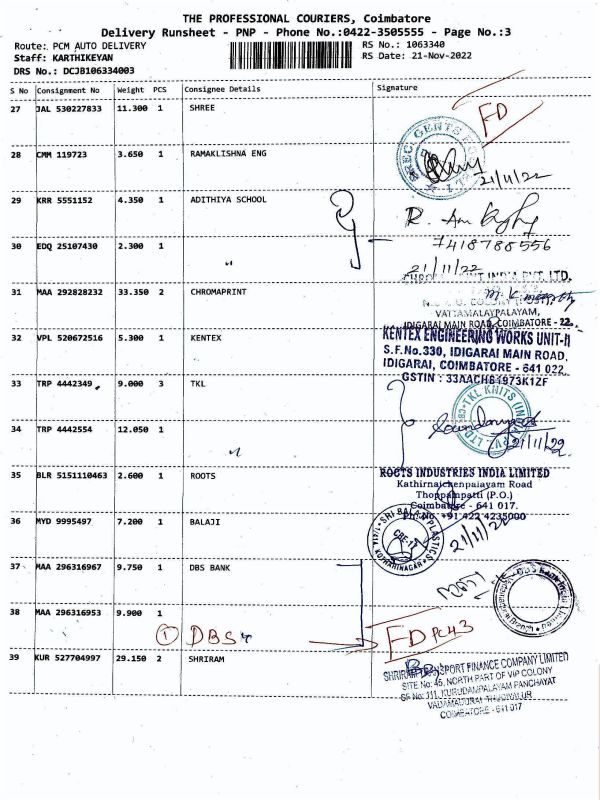 THE PROFESSIONAL COURIERS, Coimbatore
Delivery Runsheet - PNP - Phone No.:0422-3505555 - Page No.:3
Route: PCM AUTO DELIVERY
RS No.: 1063340
Staff: KARTHIKEYAN
RS Date: 21-Nov-2022
DRS No.: DCJB106334003
S No Consignment No Weight PCS Consignee Details Signature
27 JAL 530227833 11.300 1 SHREE
FD
28 CMM 119723 3.650 1 RAMAKLISHNA ENG
21/11/22
29 KRR 5551152 4.350 1 ADITHIYA SCHOOL
30 EDQ 25107430 2.300 1
7418788556
21/11/22
INDIA PVT. LTD.
31 MAA 292828232 33.350 2 CHROMAPRINT
VATTAMALAYPALAYAM,
IDIGARAI MAIN ROAD, COIMBATORE - 22.
32 VPL 520672516 5.300 1 KENTEX
KENTEX ENGINEERING WORKS UNIT-II
S.F.No.330, IDIGARAI MAIN ROAD,
IDIGARAI, COIMBATORE - 641 022.
GSTIN : 33AACHS4973K1ZF
33 TRP 4442349 9.000 3 TKL
TKL KNITS (INDIA) PVT. LTD
34 TRP 4442554 12.050 1
21/11/22
35 BLR 5151110463 2.600 1 ROOTS
ROOTS INDUSTRIES INDIA LIMITED
Kathirnaickenpalayam Road
Thoppampatti (P.O.)
Coimbatore - 641 017.
Ph.No. +91 422 4235000
36 MYD 9995497 7.200 1 BALAJI
SRI BALAJI PLASTICS
21/11/22
37 MAA 296316967 9.750 1 DBS BANK
38 MAA 296316953 9.900 1
1 DBS
FD PC43
39 KUR 527704997 29.150 2 SHRIRAM
SHRIRAM TRANSPORT FINANCE COMPANY LIMITED
SITE No: 45, NORTH PART OF VIP COLONY
SF No: 111, KURUDAMPALAYAM PANCHAYAT
COIMBATORE - 641 017